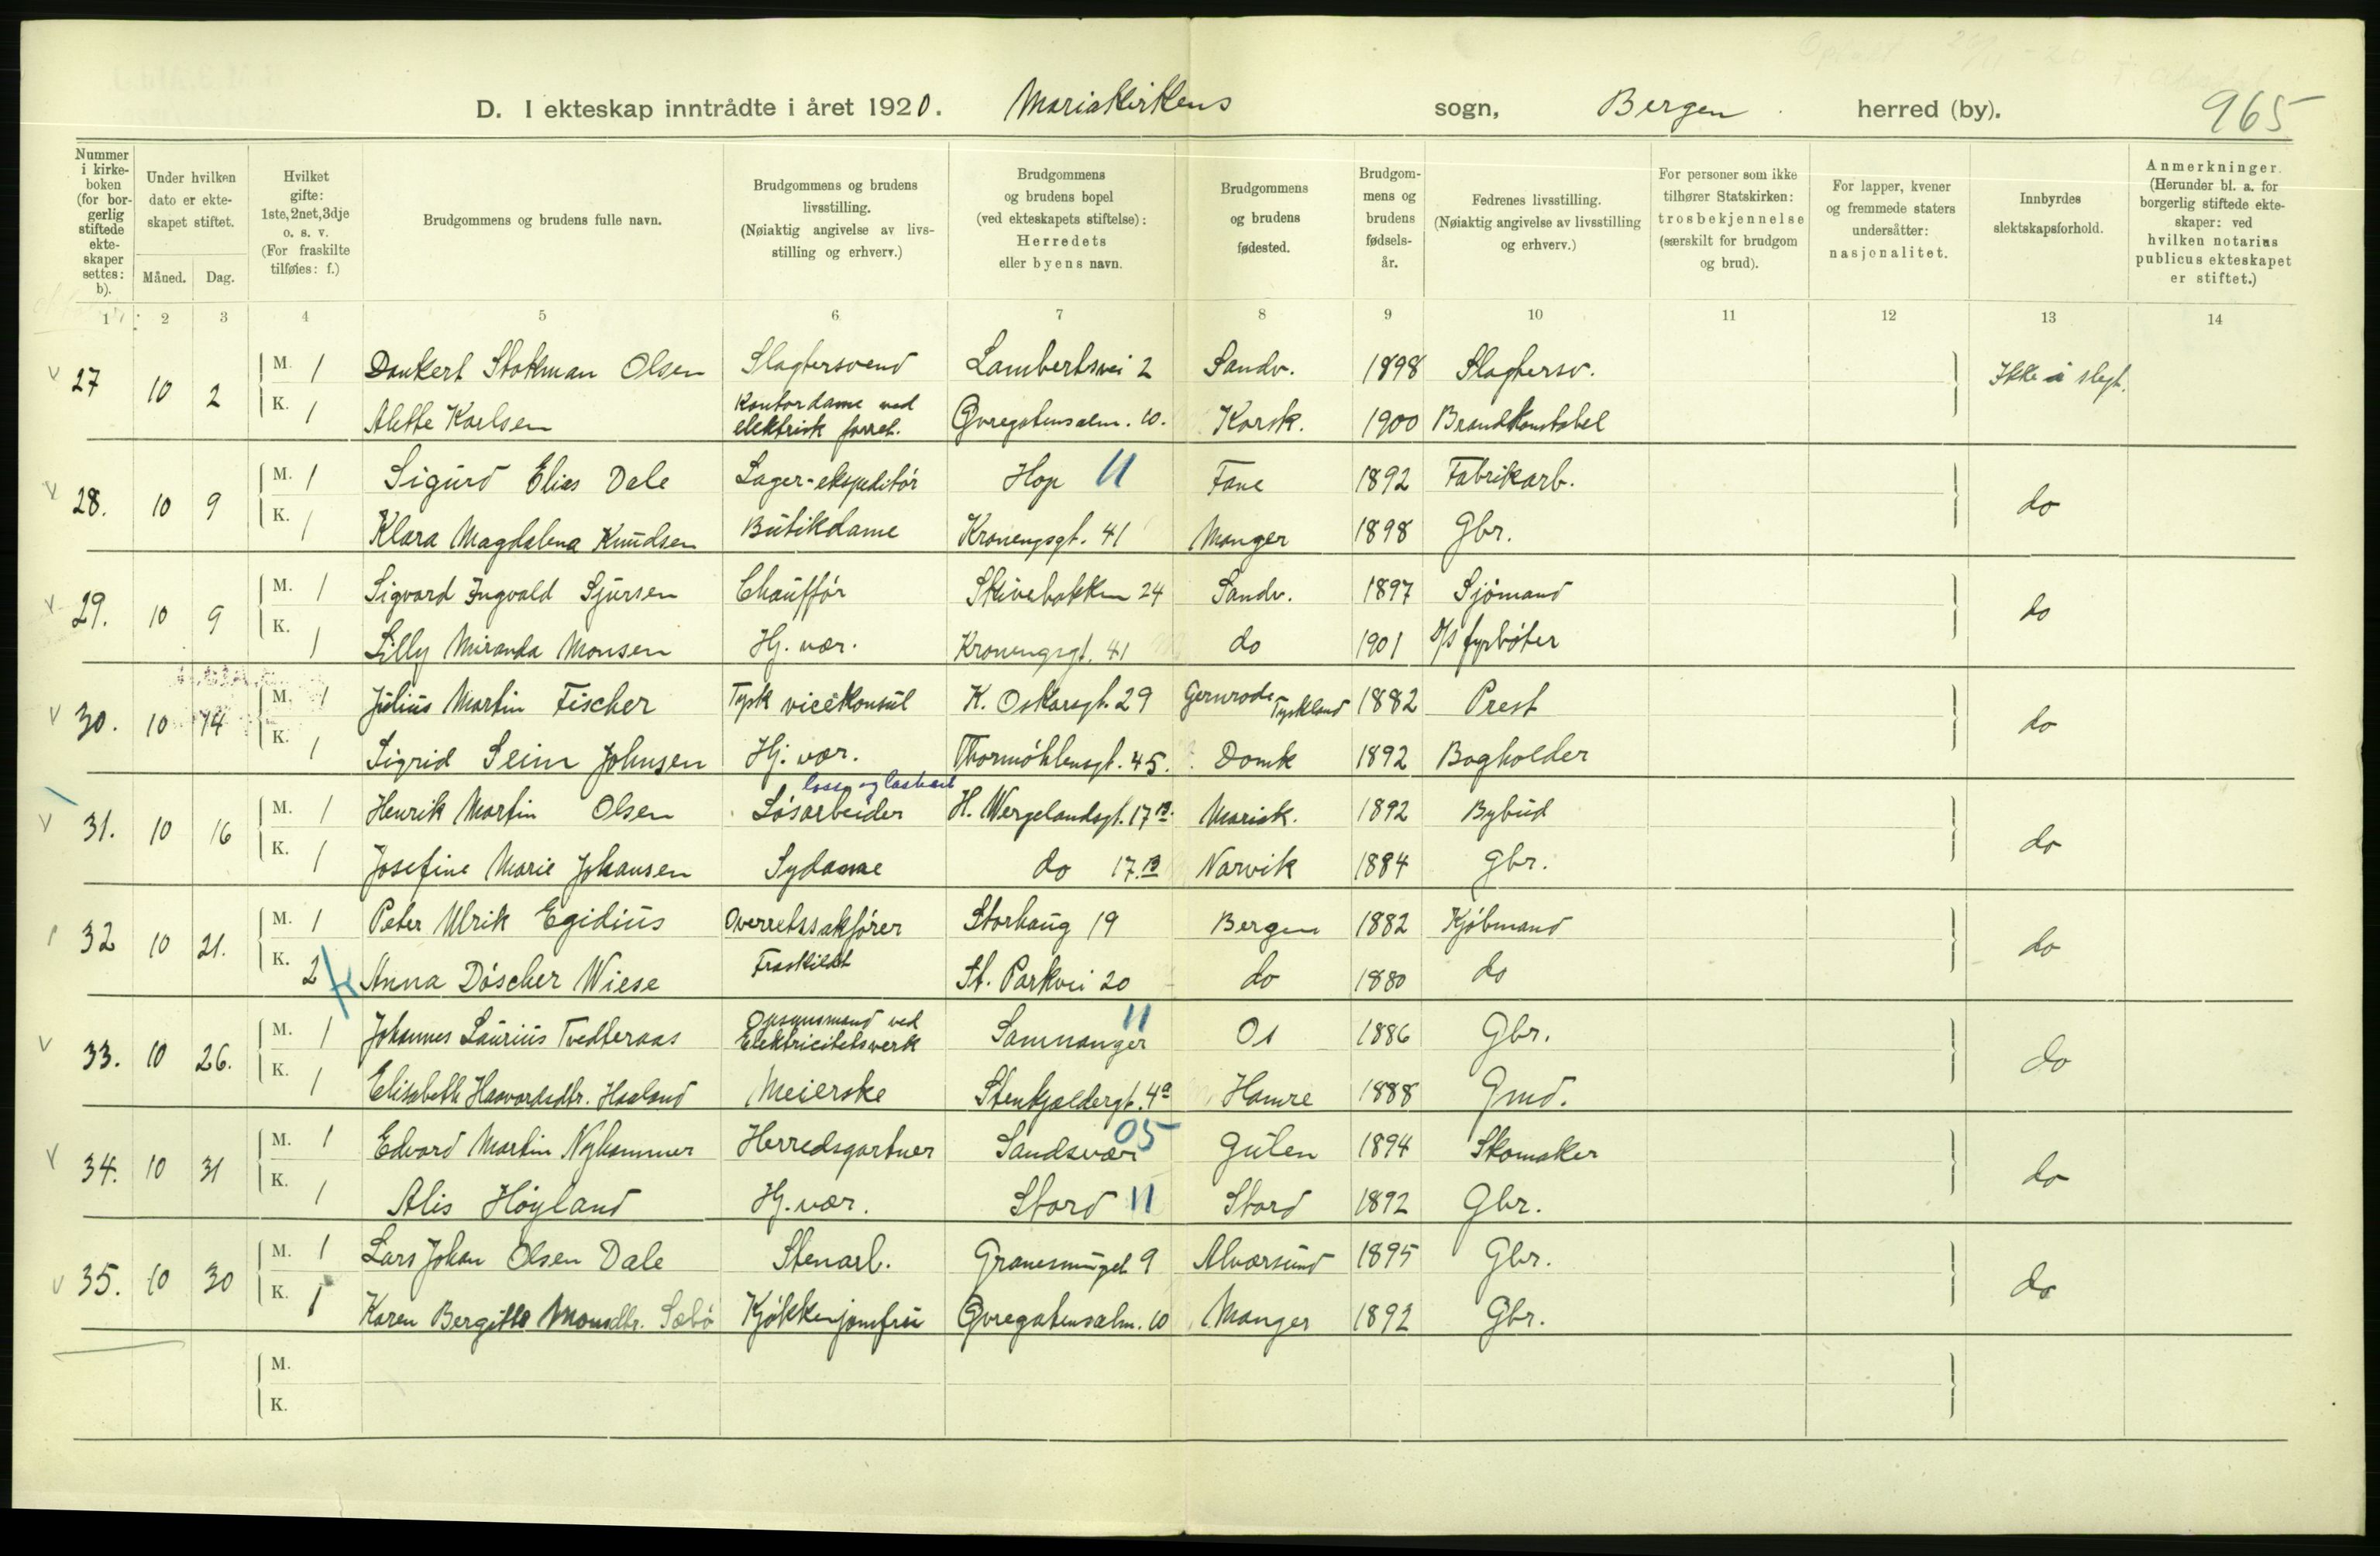 D. I ekteskap inntrådte i året 1920. Mariakirkens sogn, Bergen herred (by). 965
Nummer i kirkeboken (for borgerlig stiftede ekteskaper settes: b).
Under hvilken dato er ekteskapet stiftet.
Måned. Dag.
Hvilket gifte: 1ste, 2net, 3dje o. s. v. (For fraskilte tilføies: f.)
Brudgommens og brudens fulle navn.
Brudgommens og brudens livsstilling. (Nøiaktig angivelse av livsstilling og erhverv.)
Brudgommens og brudens bopel (ved ekteskapets stiftelse): Herredets eller byens navn.
Brudgommens og brudens fødested.
Brudgommens og brudens fødselsår.
Fedrenes livsstilling. (Nøiaktig angivelse av livsstilling og erhverv.)
For personer som ikke tilhører Statskirken: trosbekjennelse (særskilt for brudgom og brud).
For lapper, kvener og fremmede staters undersåtter: nasjonalitet.
Innbyrdes slektskapsforhold.
Anmerkninger. (Herunder bl. a. for borgerlig stiftede ekteskaper: ved hvilken notarius publicus ekteskapet er stiftet.)
1 2 3 4 5 6 7 8 9 10 11 12 13 14
27 10 2 M. 1 Dankert Stokman Olsen Slagtersvend Lambertsvei 2 Sandv. 1898 Slagtersv. Ikke i slegt.
K. 1 Alette Karlsen Kontordame ved elektrisk forret. Øvregatensalm. 10. Korsk. 1900 Brandkonstabel
28. 10 9 M. 1 Sigurd Elias Dale Lager-ekspeditör Hop 11 Fane 1892 Fabrikarb. do
K. 1 Klara Magdalena Knudsen Butikdame Kronengsgt. 41 Manger 1898 Gbr.
29. 10 9 M. 1 Sigvard Ingvald Sjursen Chaufför Skivebakken 24 Sandv. 1897 Sjömand do
K. 1 Lilly Miranda Monsen Hj. vær. Kronengsgt. 41 do 1901 D/S fyrböter
30. 10 14 M. 1 Julius Martin Fischer Tysk vicekonsul K. Oskarsgt. 29 Gernrode Tyskland 1882 Prest do
K. 1 Sigrid Seim Johnsen Hj. vær. Thormöhlensgt. 45. Domk 1892 Bogholder
31. 10 16 M. 1 Henrik Martin Olsen Lösarbeider H. Wergelandsgt. 17 B. Mariak. 1892 Bybud do
K. 1 Josefine Marie Johansen Sydame do 17. B Narvik 1884 Gbr.
32 10 21. M. 1 Peter Ulrik Egidius Overretssakförer Storhaug 19 Bergen 1882 Kjöbmand do
K. 2 Anna Döscher Wiese Fraskildt St. Parkvei 20 do 1880 do
33. 10 26. M. 1 Johannes Laurius Tvedteraas Opsynsmand ved Elektricitetsverk Samnanger 11 Os 1886 Gbr. do
K. 1 Elisabeth Haavardsdtr. Haaland Meierske Stenkjeldergt. 4a Hamre 1888 Gmd.
34. 10 31 M. 1 Edvard Martin Nyhammer Herredsgartner Sandsvær 05 Gulen 1894 Skomaker do
K. 1 Alis Höyland Hj. vær. Stord 11 Stord 1892 Gbr.
35. 10 30 M. 1 Lars Johan Olsen Dale Stenarb. Granesmuget 9 Alversund 1895 Gbr. do
K. 1 Karen Bergitte Monsdtr. Sæbö Kjökkenjomfru Øvregatensalm. 10 Manger 1892 Gbr.
M.
K.